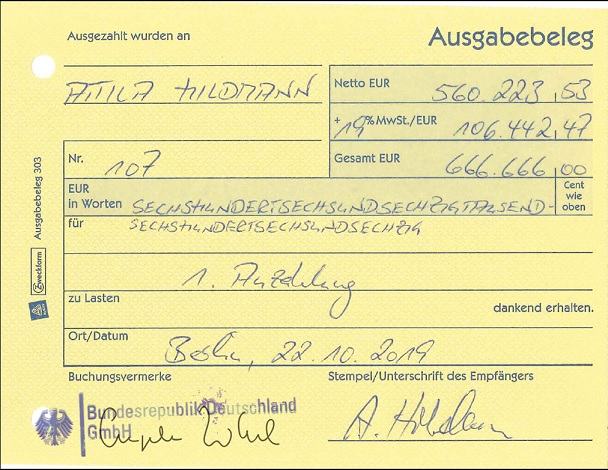 Ausgezahlt wurden an
Ausgabebeleg
ATTILA HILDMANN
Netto EUR 560.223,53
+ 19 % MwSt./EUR 106.442,47
Nr. 107
Gesamt EUR 666.666,00
EUR in Worten SECHSHUNDERTSECHSUNDSECHZIGTAUSEND-
Cent wie oben
für SECHSHUNDERTSECHSUNDSECHZIG
1. Anzahlung
zu Lasten
dankend erhalten.
Ort/Datum
Berlin, 22.10.2019
Buchungsvermerke
Stempel/Unterschrift des Empfängers
Bundesrepublik Deutschland
GmbH
A. Hildmann
Ausgabebeleg 303
Zweckform